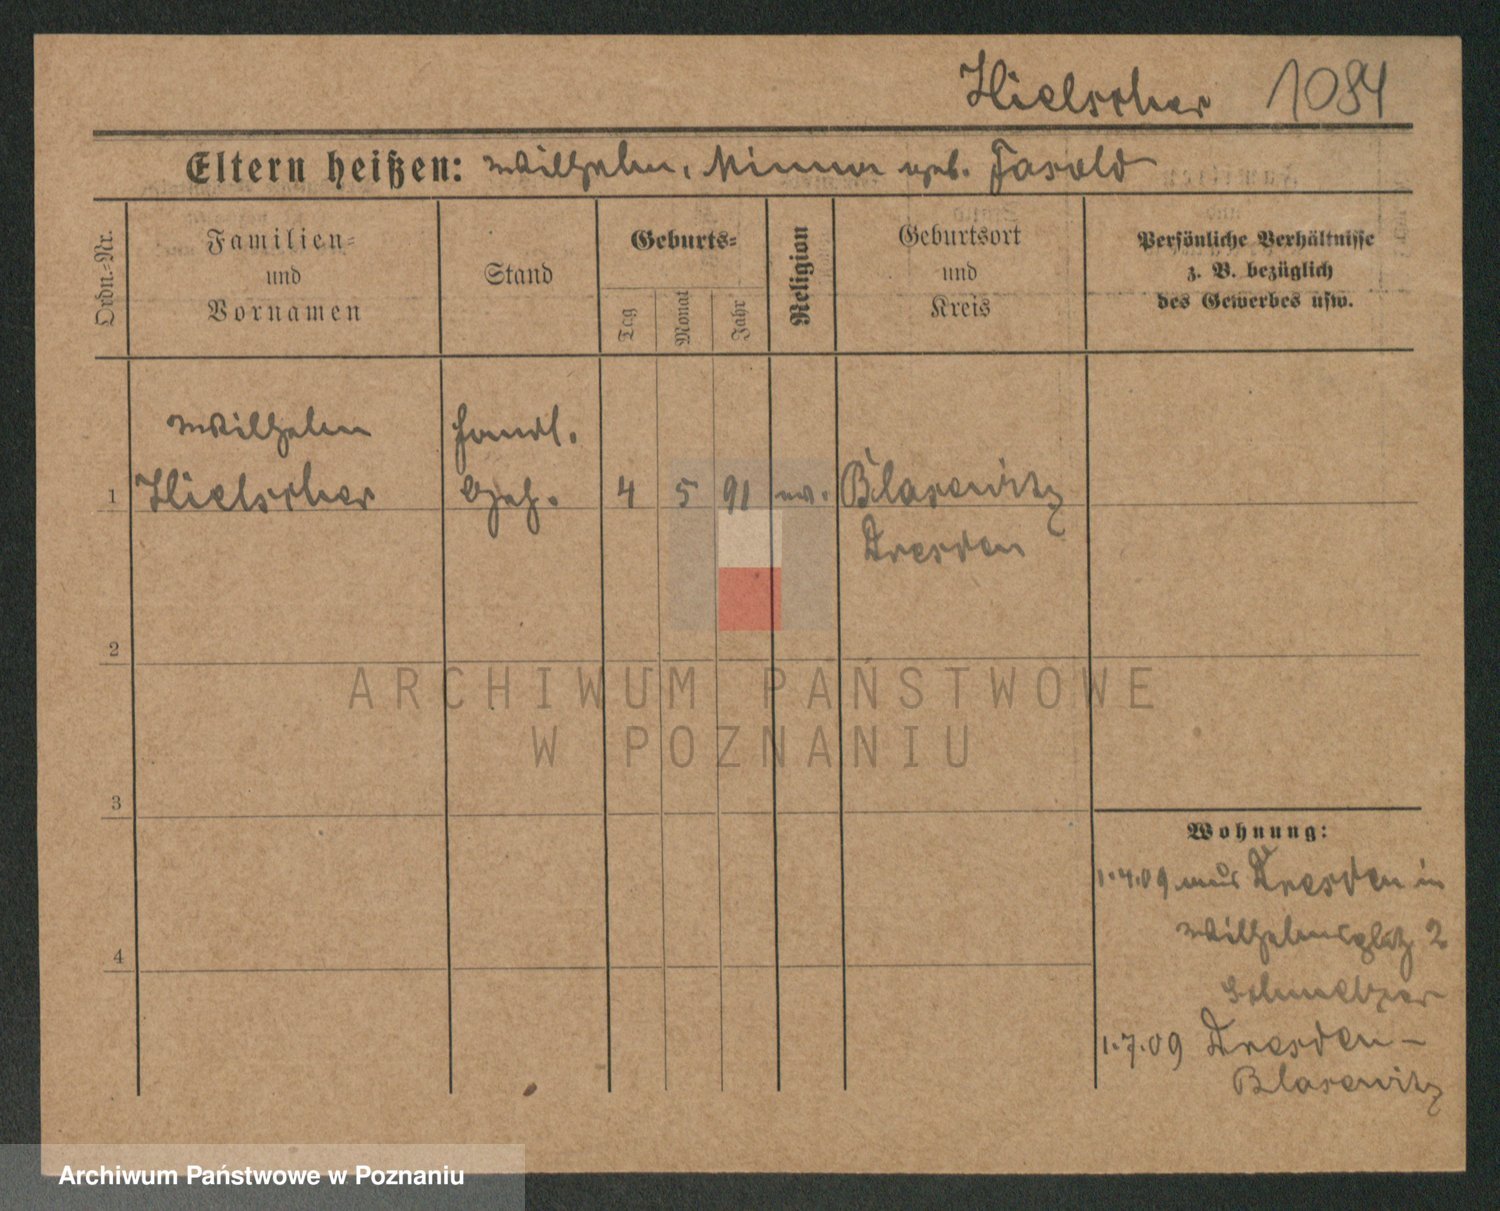 Hielscher 1084
Eltern heißen: Wilhelm, Minna geb. Fasold
Ordn.-Nr.
Familien-
und
Vornamen
Stand
Geburts-
Tag
Monat
Jahr
Religion
Geburtsort
und
Kreis
Persönliche Verhältnisse
z. B. bezüglich
des Gewerbes usw.
Wilhelm Handl.
1 Hielscher Geh. 4 5 91 ev. Blasewitz
Dresden
2
ARCHIWUM PAŃSTWOWE
W POZNANIU
3
Wohnung:
1.4.09 aus Dresden in
Wilhelmsplatz 2
Schmelzer
4
1.7.09 Dresden-
Blasewitz
Archiwum Państwowe w Poznaniu